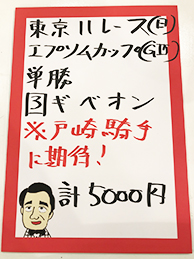 東京11レース(日)
エプソムカップ(GⅢ)
単勝
3ギベオン
※戸崎騎手
に期待!
計5000円